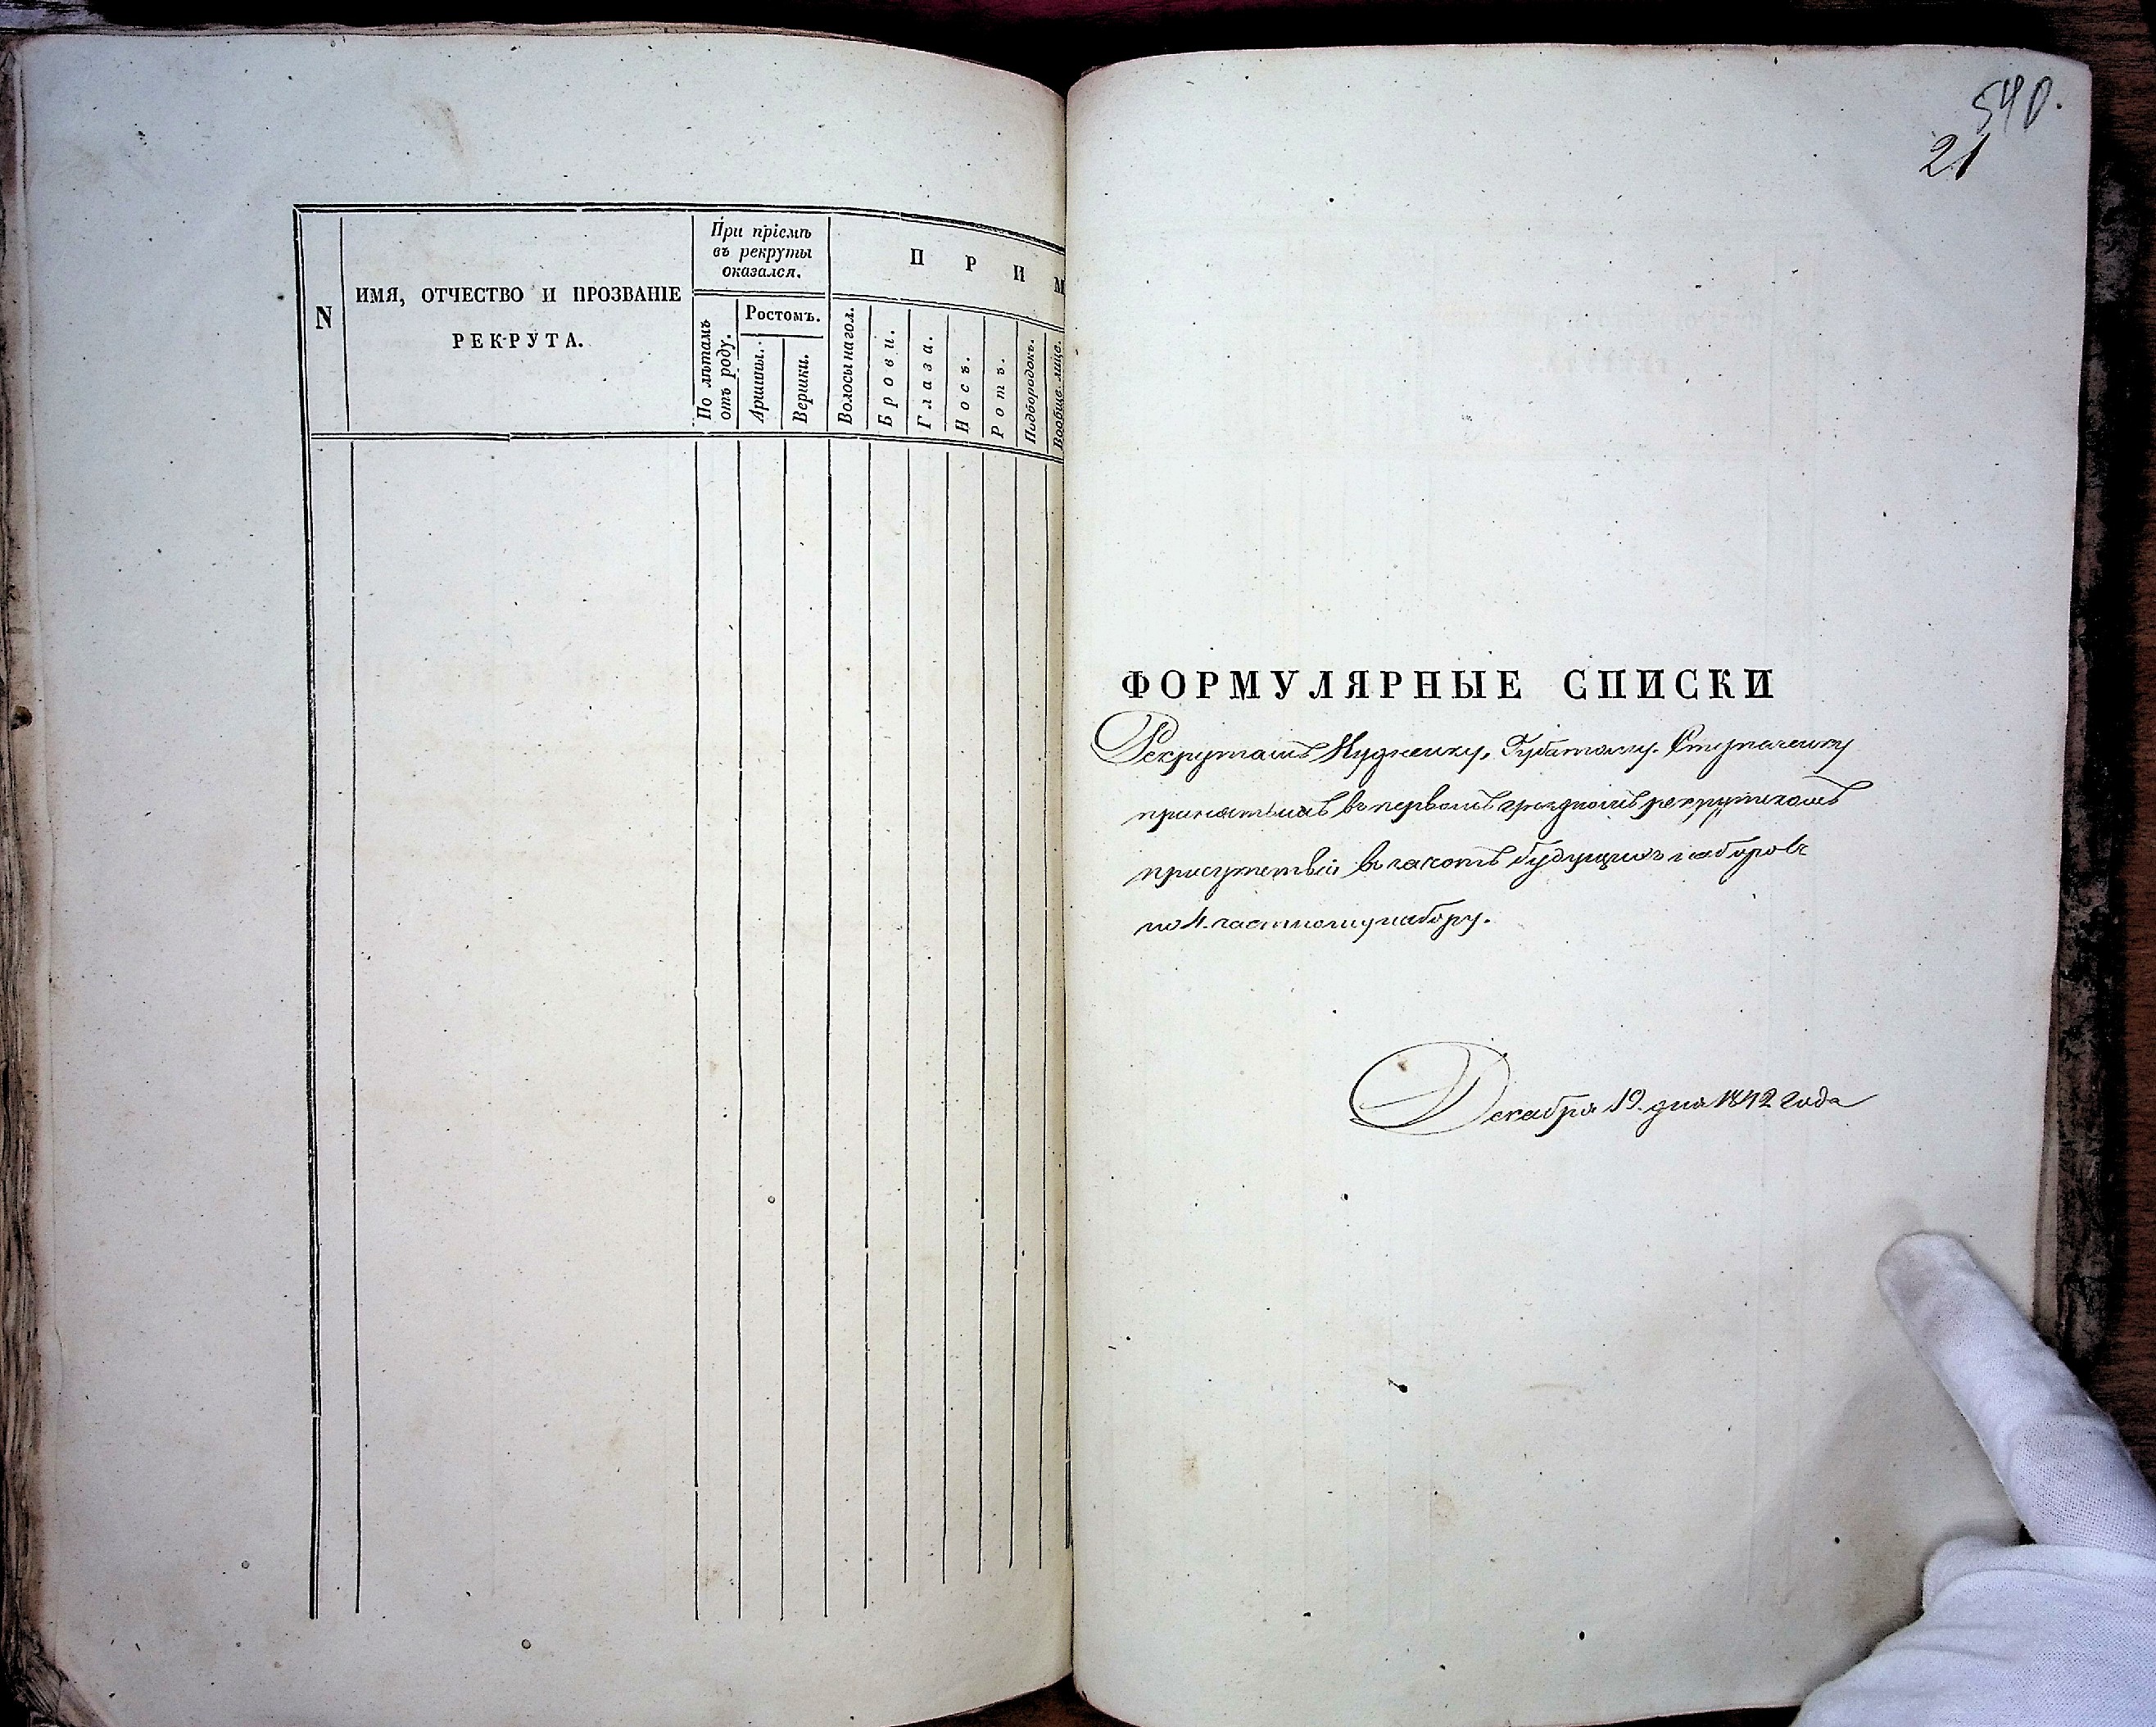 N
ИМЯ, ОТЧЕСТВО И ПРОЗВАНІЕ
РЕКРУТА.
При пріемѣ
въ рекруты
оказался.
По лѣтамъ
отъ роду.
Ростомъ.
Аршины.
Вершки.
П Р И М
Волосы на гол.
Брови.
Глаза.
Носъ.
Ротъ.
Подбородокъ.
Вообще лице.
540.
21
ФОРМУЛЯРНЫЕ СПИСКИ
Рекрутамъ Губатому.
принятымъ въ первомъ рекрутскомъ
присутствіи въ зачотъ будущихъ наборовъ
по 4. частному набору.
Декабря 19. дня 1842 года